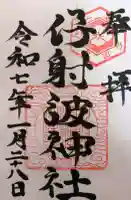 奉拝
伊射波神社
令和七年一月二八日